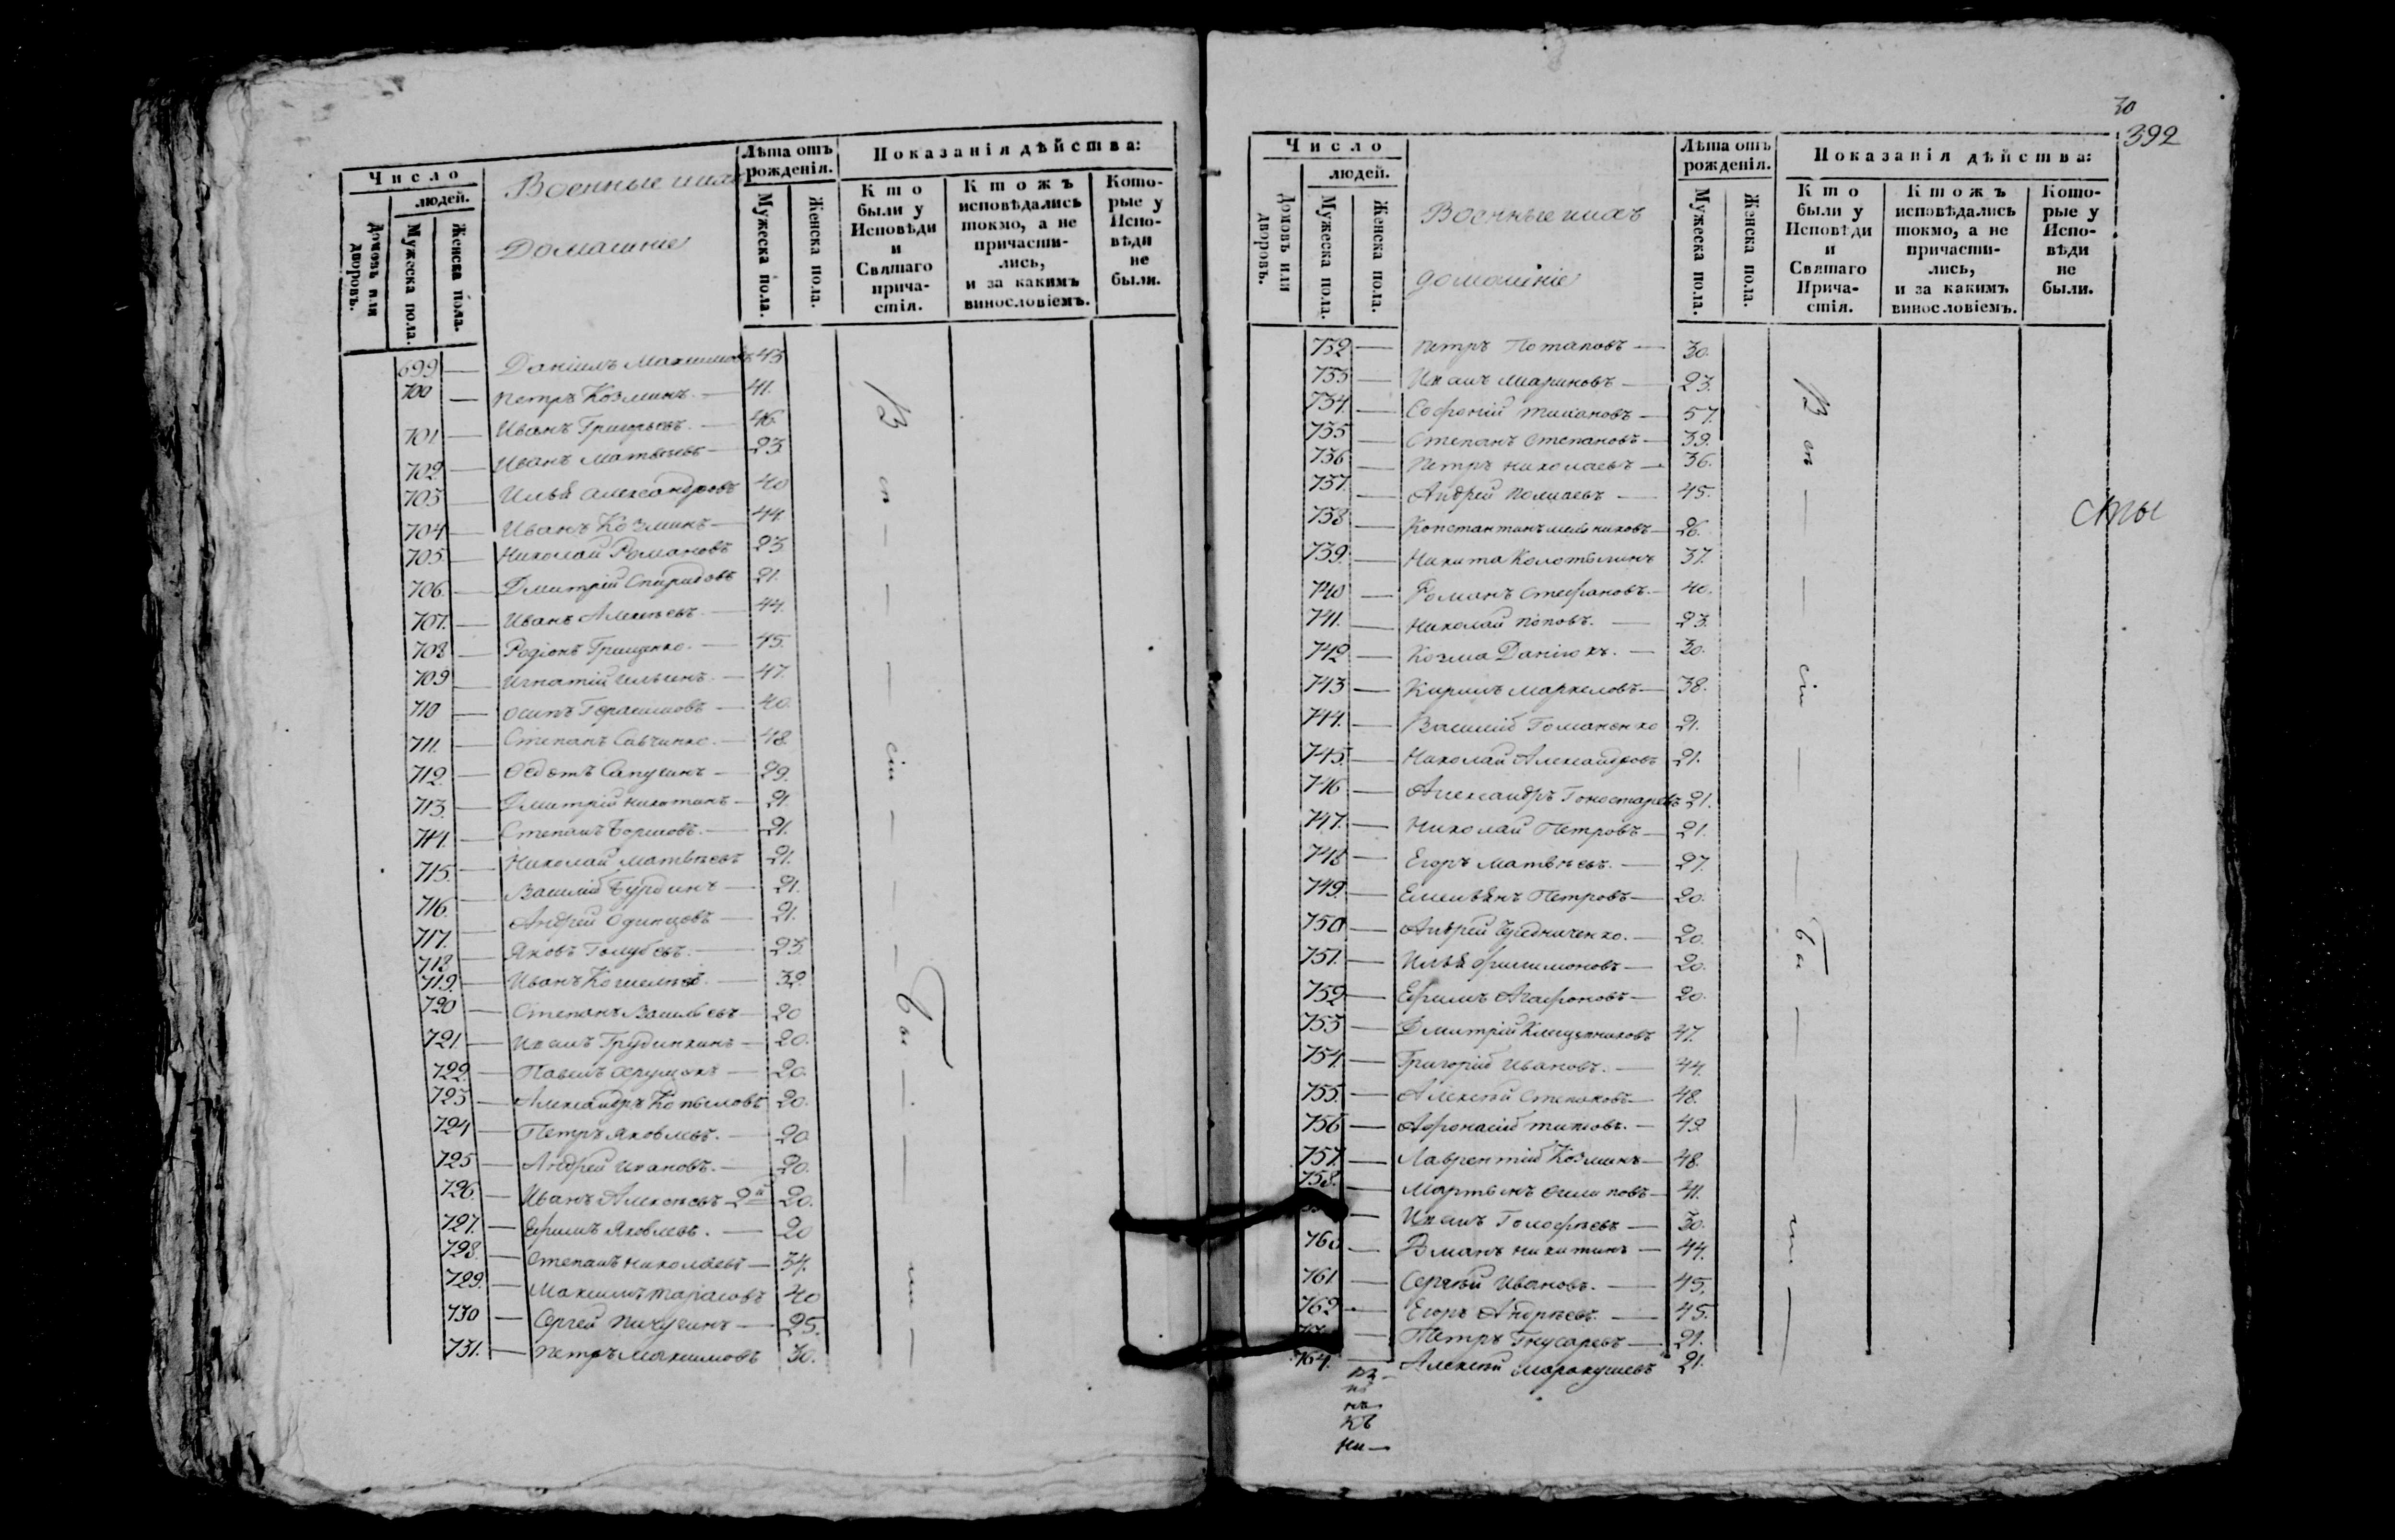 Число
людей.
Домовъ или дворовъ.
Мужеска пола.
Женска пола.
Военные
Домашніе
Лѣта отъ рожденія.
Мужеска пола.
Женска пола.
Показанія дѣйства:
Кто были у Исповѣди и Святаго причастія.
Ктожъ исповѣдались токмо, а не причастились, и за какимъ винословіемъ.
Которые у Исповѣди не были.
699 — Даніилъ Максимовъ 43
700 — Петръ Козминъ — 41.
701 — Иванъ Григорьевъ — 46
702 — Иванъ Матвѣевъ — 23
703 — Илья Александровъ 40
704 — Иванъ Козминъ — 44.
705 — Николай Романовъ 23
706. — Дмитрій Спиридовъ 21.
707. — Иванъ Алексѣевъ — 44.
708 — Родіонъ Грищенко. — 45.
709 — Игнатій Ильинъ — 47.
710 — Осипъ Герасимовъ — 40.
711. — Степанъ Савченко — 48.
712. — Ѳедотъ Сапугинъ — 29.
713. — Дмитрій Никитинъ — 21.
714. — Степанъ — 21.
715. — Николай Матвѣевъ 21.
716. Василій Бурдинъ — 21.
717. Андрей Одинцовъ — 21.
718 — Яковъ Голубевъ. — 23.
719. — Иванъ — 32.
720 — Степанъ Васильевъ — 20
721. — Иванъ Грудинкинъ — 20.
722. — Павелъ — 20.
723 — Александръ Копыловъ 20.
724 — Петръ Яковлевъ. — 20.
725 — Андрей Ивановъ. — 20.
726. — Иванъ Алексѣевъ 2й 20.
727. — Ефимъ Яковлевъ. — 20
728. — Степанъ Николаевъ — 34.
729. — Максимъ Тарасовъ 40
730 — Сергей Пичугинъ — 25.
731. — Петръ Максимовъ 30.
30
392
Число
людей.
Домовъ или дворовъ.
Мужеска пола.
Женска пола.
Военные
домашніе
Лѣта отъ рожденія.
Мужеска пола.
Женска пола.
Показанія дѣйства:
Кто были у Исповѣди и Святаго Причастія.
Ктожъ исповѣдались токмо, а не причастились, и за какимъ винословіемъ.
Которые у Исповѣди не были.
732 — Петръ Потаповъ — 30.
733 — Иванъ Мариновъ — 23.
734. — Софроній Тихановъ — 57.
735 — Степанъ Степановъ — 39.
736 — Петръ Николаевъ — 36.
737. — Андрей — 45.
738 — Константинъ — 26.
739. — Никита 37.
740 — Романъ Стефановъ. — 40.
741. — Николай Поповъ. — 23.
742 — Козма Данілюкъ. — 30.
743 — Кирилъ Маркеловъ — 38.
744. — Василій Гоманенко 21.
745. — Николай Александровъ 21.
746 — Александръ 21.
747. — Николай Петровъ — 21.
748 — Егоръ Матвѣевъ. — 27.
749. — Емельянъ Петровъ — 20.
750 — Андрей Чередниченко. — 20.
751. — Илья Филимоновъ — 20.
752 — Ефимъ Агафоновъ — 20.
753 — Дмитрій 47.
754. — Григорій Ивановъ. — 44.
755. — Алексѣй Степановъ — 48.
756 — Афонасій Титовъ. — 49.
757. — Лаврентій Козминъ — 48.
758. — Мартынъ — 41.
— Иванъ — 30.
760 — Никитинъ — 44.
761. — Сергѣй Ивановъ. — 45.
762 — Егоръ Андрѣевъ — 45.
— Петръ Гнусаревъ — 21.
764. Алексѣй Маракушевъ 21.
сты